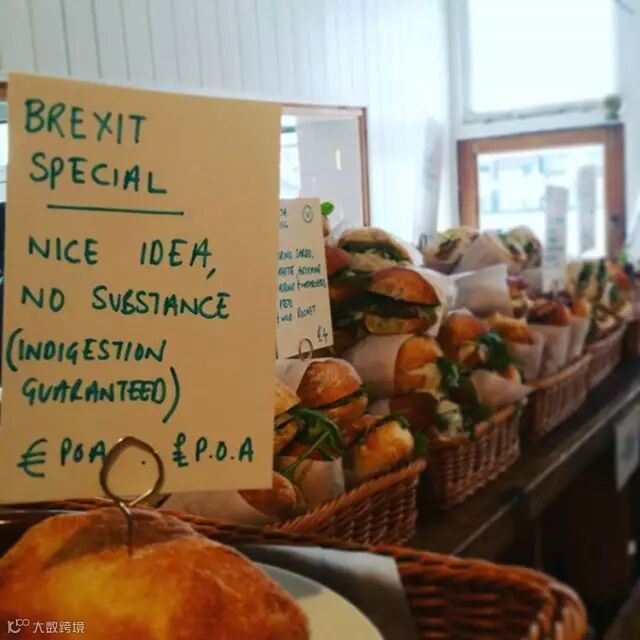 BREXIT
SPECIAL
NICE IDEA,
NO SUBSTANCE
(INDIGESTION
GUARANTEED)
€ POA. £ P.O.A
£4
大数跨境